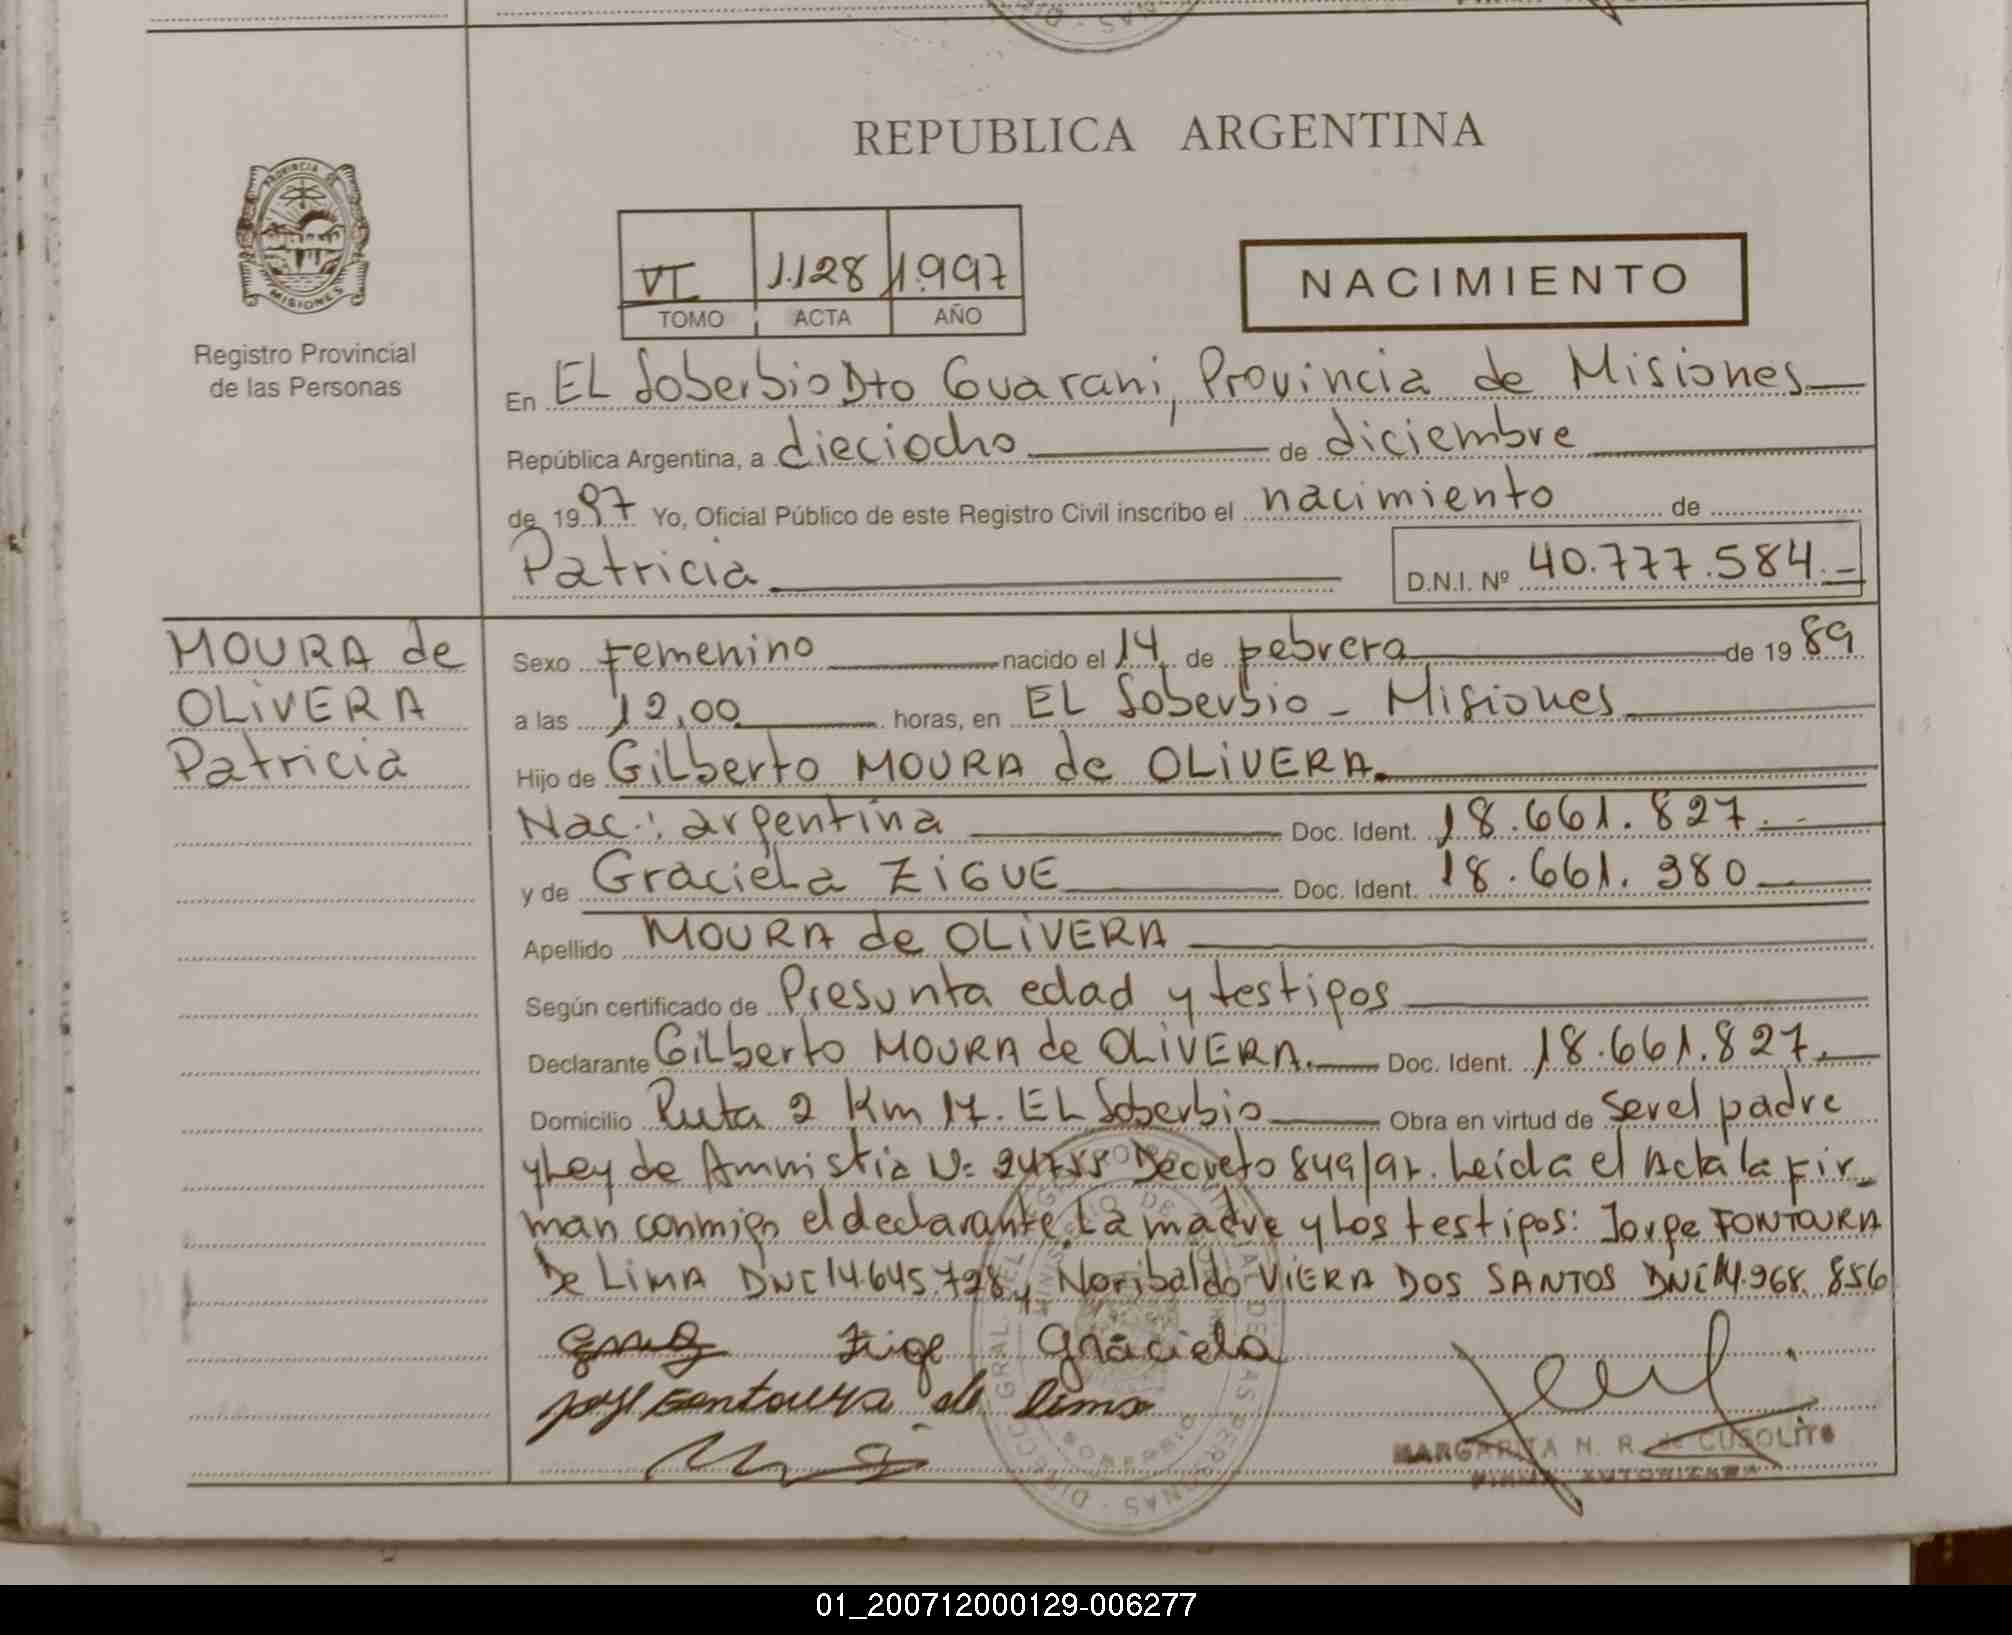 REPUBLICA ARGENTINA
PROVINCIA DE
MISIONES
Registro Provincial
de las Personas
VI 1.128 1.997
TOMO ACTA AÑO
NACIMIENTO
En EL Soberbio Dto Guarani, Provincia de Misiones
República Argentina, a dieciocho de diciembre
de 1997 Yo, Oficial Público de este Registro Civil inscribo el nacimiento de
Patricia D.N.I. Nº 40.777.584.-
MOURA de
OLIVERA
Patricia
Sexo Femenino nacido el 14 de febrero de 1989
a las 12,00 horas, en EL Soberbio - Misiones
Hijo de Gilberto MOURA de OLIVERA.
Nac.: argentina Doc. Ident. 18.661.827.-
y de Graciela ZIGUE Doc. Ident. 18.661.380
Apellido MOURA de OLIVERA
Según certificado de Presunta edad y testigos
Declarante Gilberto MOURA de OLIVERA. Doc. Ident. 18.661.827.
Domicilio Ruta 2 Km 17. EL Soberbio Obra en virtud de ser el padre
y Ley de Amnistia Nº 24755 Decreto 849/97. Leida el Acta la fir-
man conmigo el declarante, La madre y Los testigos: Jorge FONTOURA
De LIMA DNI 14.645.798 y Noribaldo VIERA DOS SANTOS DNI 14.968.856
Zige Graciela
fontoura de lima
MARGARITA N. R. de CUSOLITO
FIRMA AUTORIZADA
01_200712000129-006277